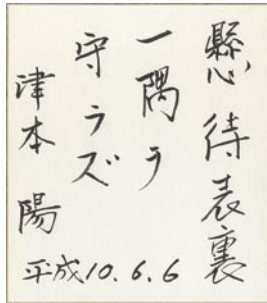 懸待表裏
一隅ヲ
守ラズ
津本陽
平成10.6.6